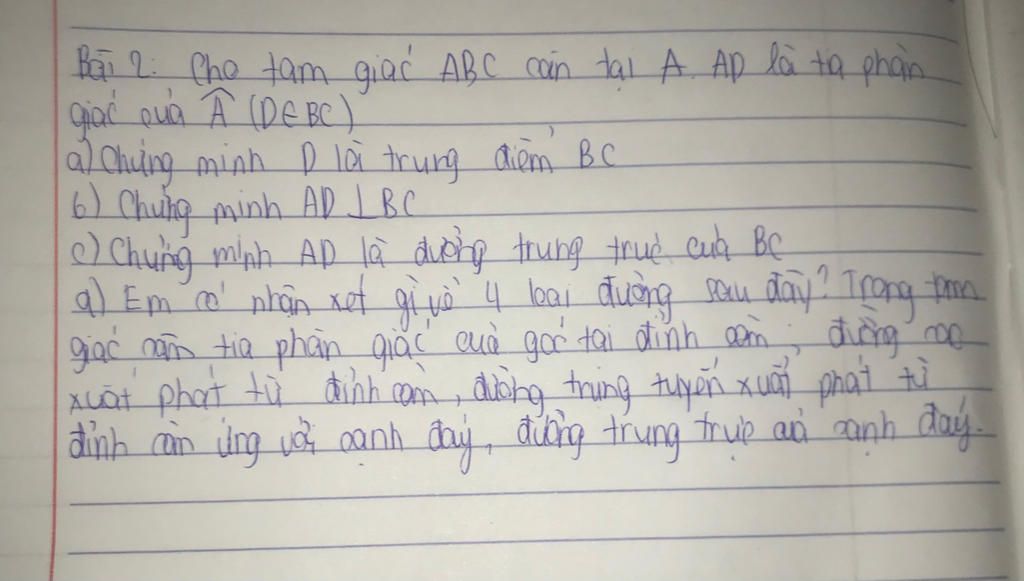 Bài 2: Cho tam giác ABC cân tại A. AD là ta phân
giác của  (D∈BC)
a) Chứng minh D là trung điểm BC
b) Chứng minh AD ⊥ BC
c) Chứng minh AD là đường trung trực của BC
d) Em có nhận xét gì về 4 loại đường sau đây? Trong tam
giác cân tia phân giác của góc tại đỉnh cân, đường cao
xuất phát từ đỉnh cân, đường trung tuyến xuất phát từ
đỉnh cân ứng với cạnh đáy, đường trung trực của cạnh đáy.